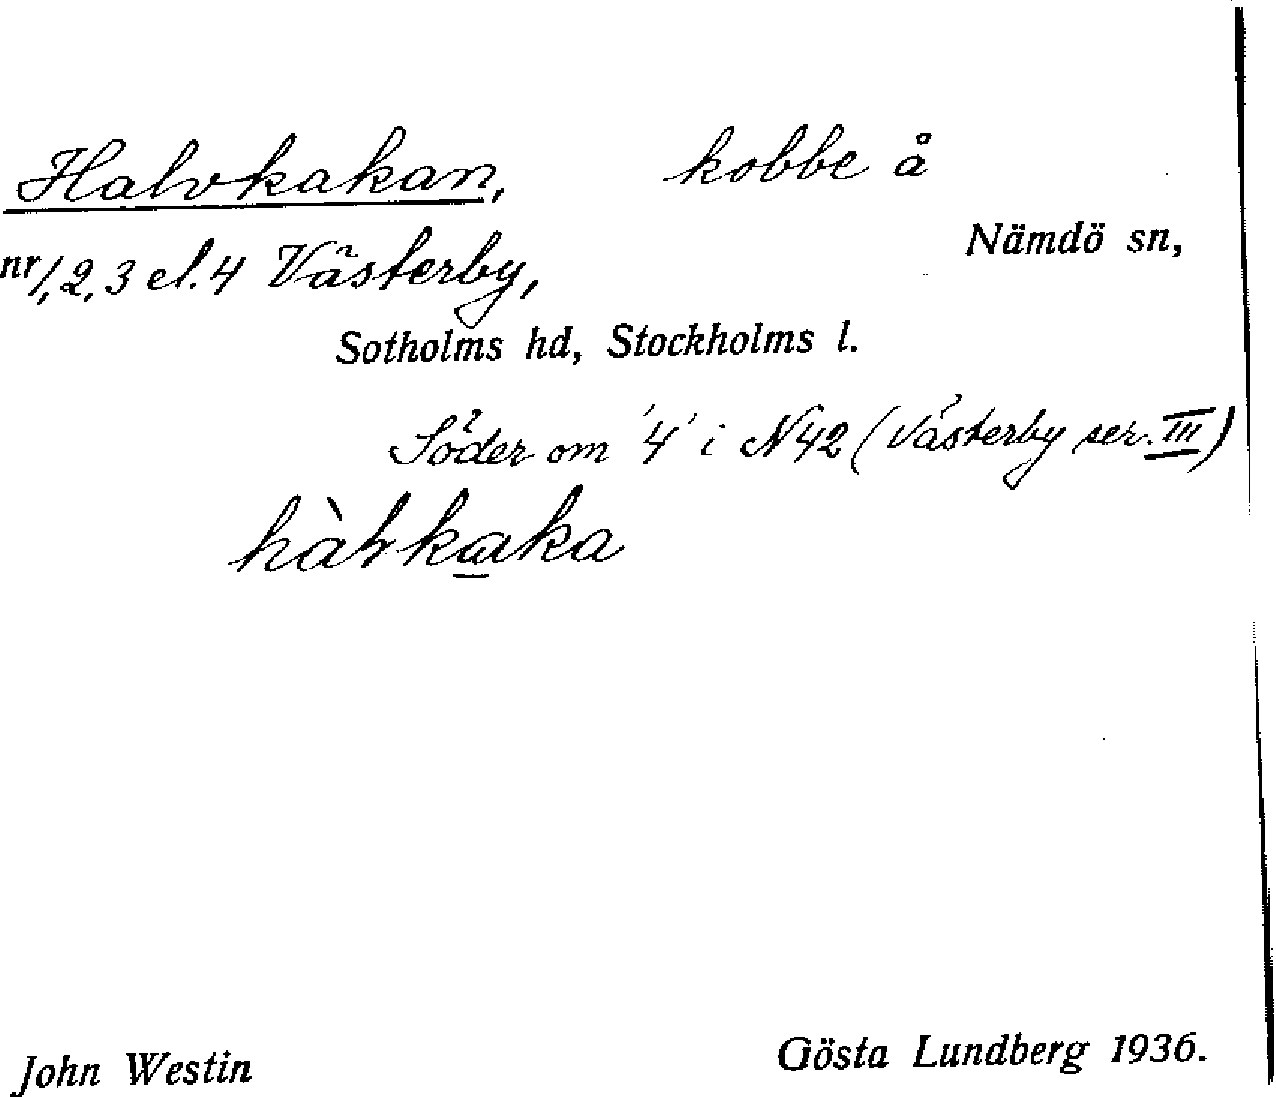 Halvkakan, kobbe å
Nämdö sn,
nr 1, 2, 3 el. 4 Västerby,
Sotholms hd, Stockholms l.
Söder om '4' i N42 (Västerby ser. III)
hàlvkaka
John Westin
Gösta Lundberg 1936.